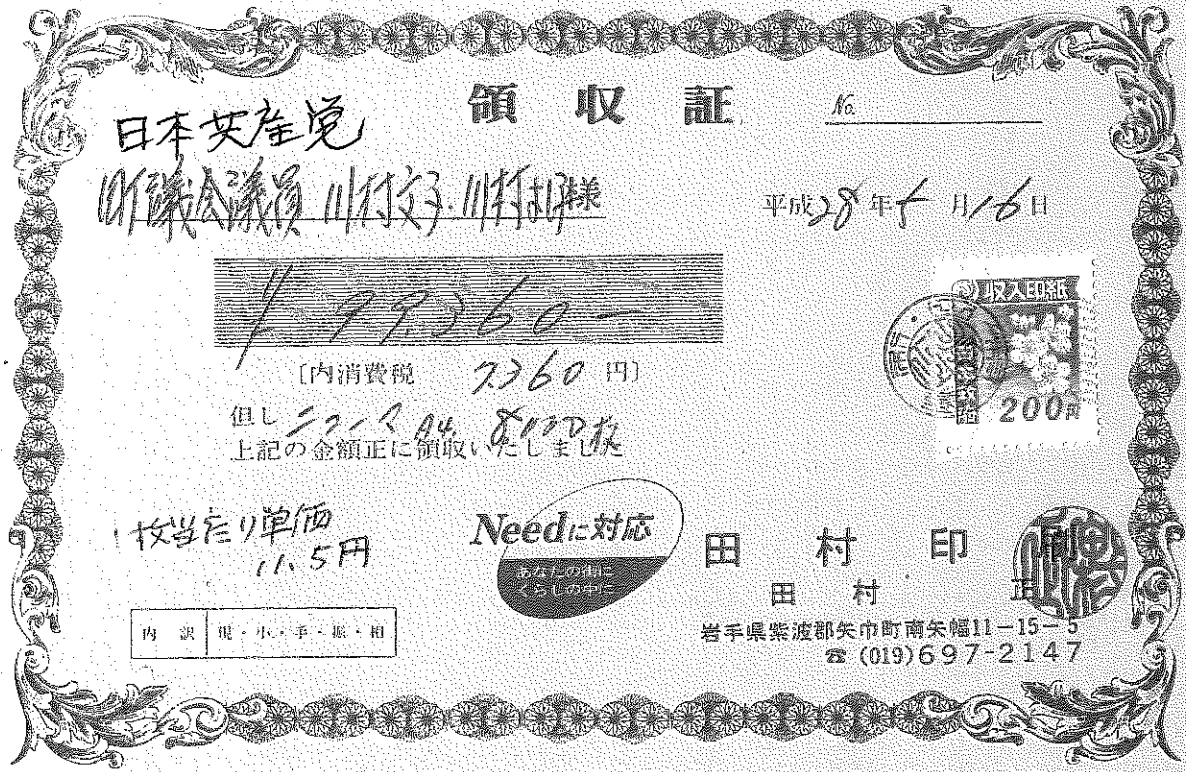 領収証
No.
日本共産党
町議会議員 川村文子・川村 様
平成28年5月16日
¥99,360-
〔内消費税 7360 円〕
但し ニュース A4. 8,000枚
上記の金額正に領収いたしました
収入印紙
200円
1枚当たり単価
11.5円
Needに対応
あなたの街に
くらしの中に
田村印刷
田村 正
岩手県紫波郡矢巾町南矢幅11-15-5
☎ (019)697-2147
内訳 現・小・手・振・相